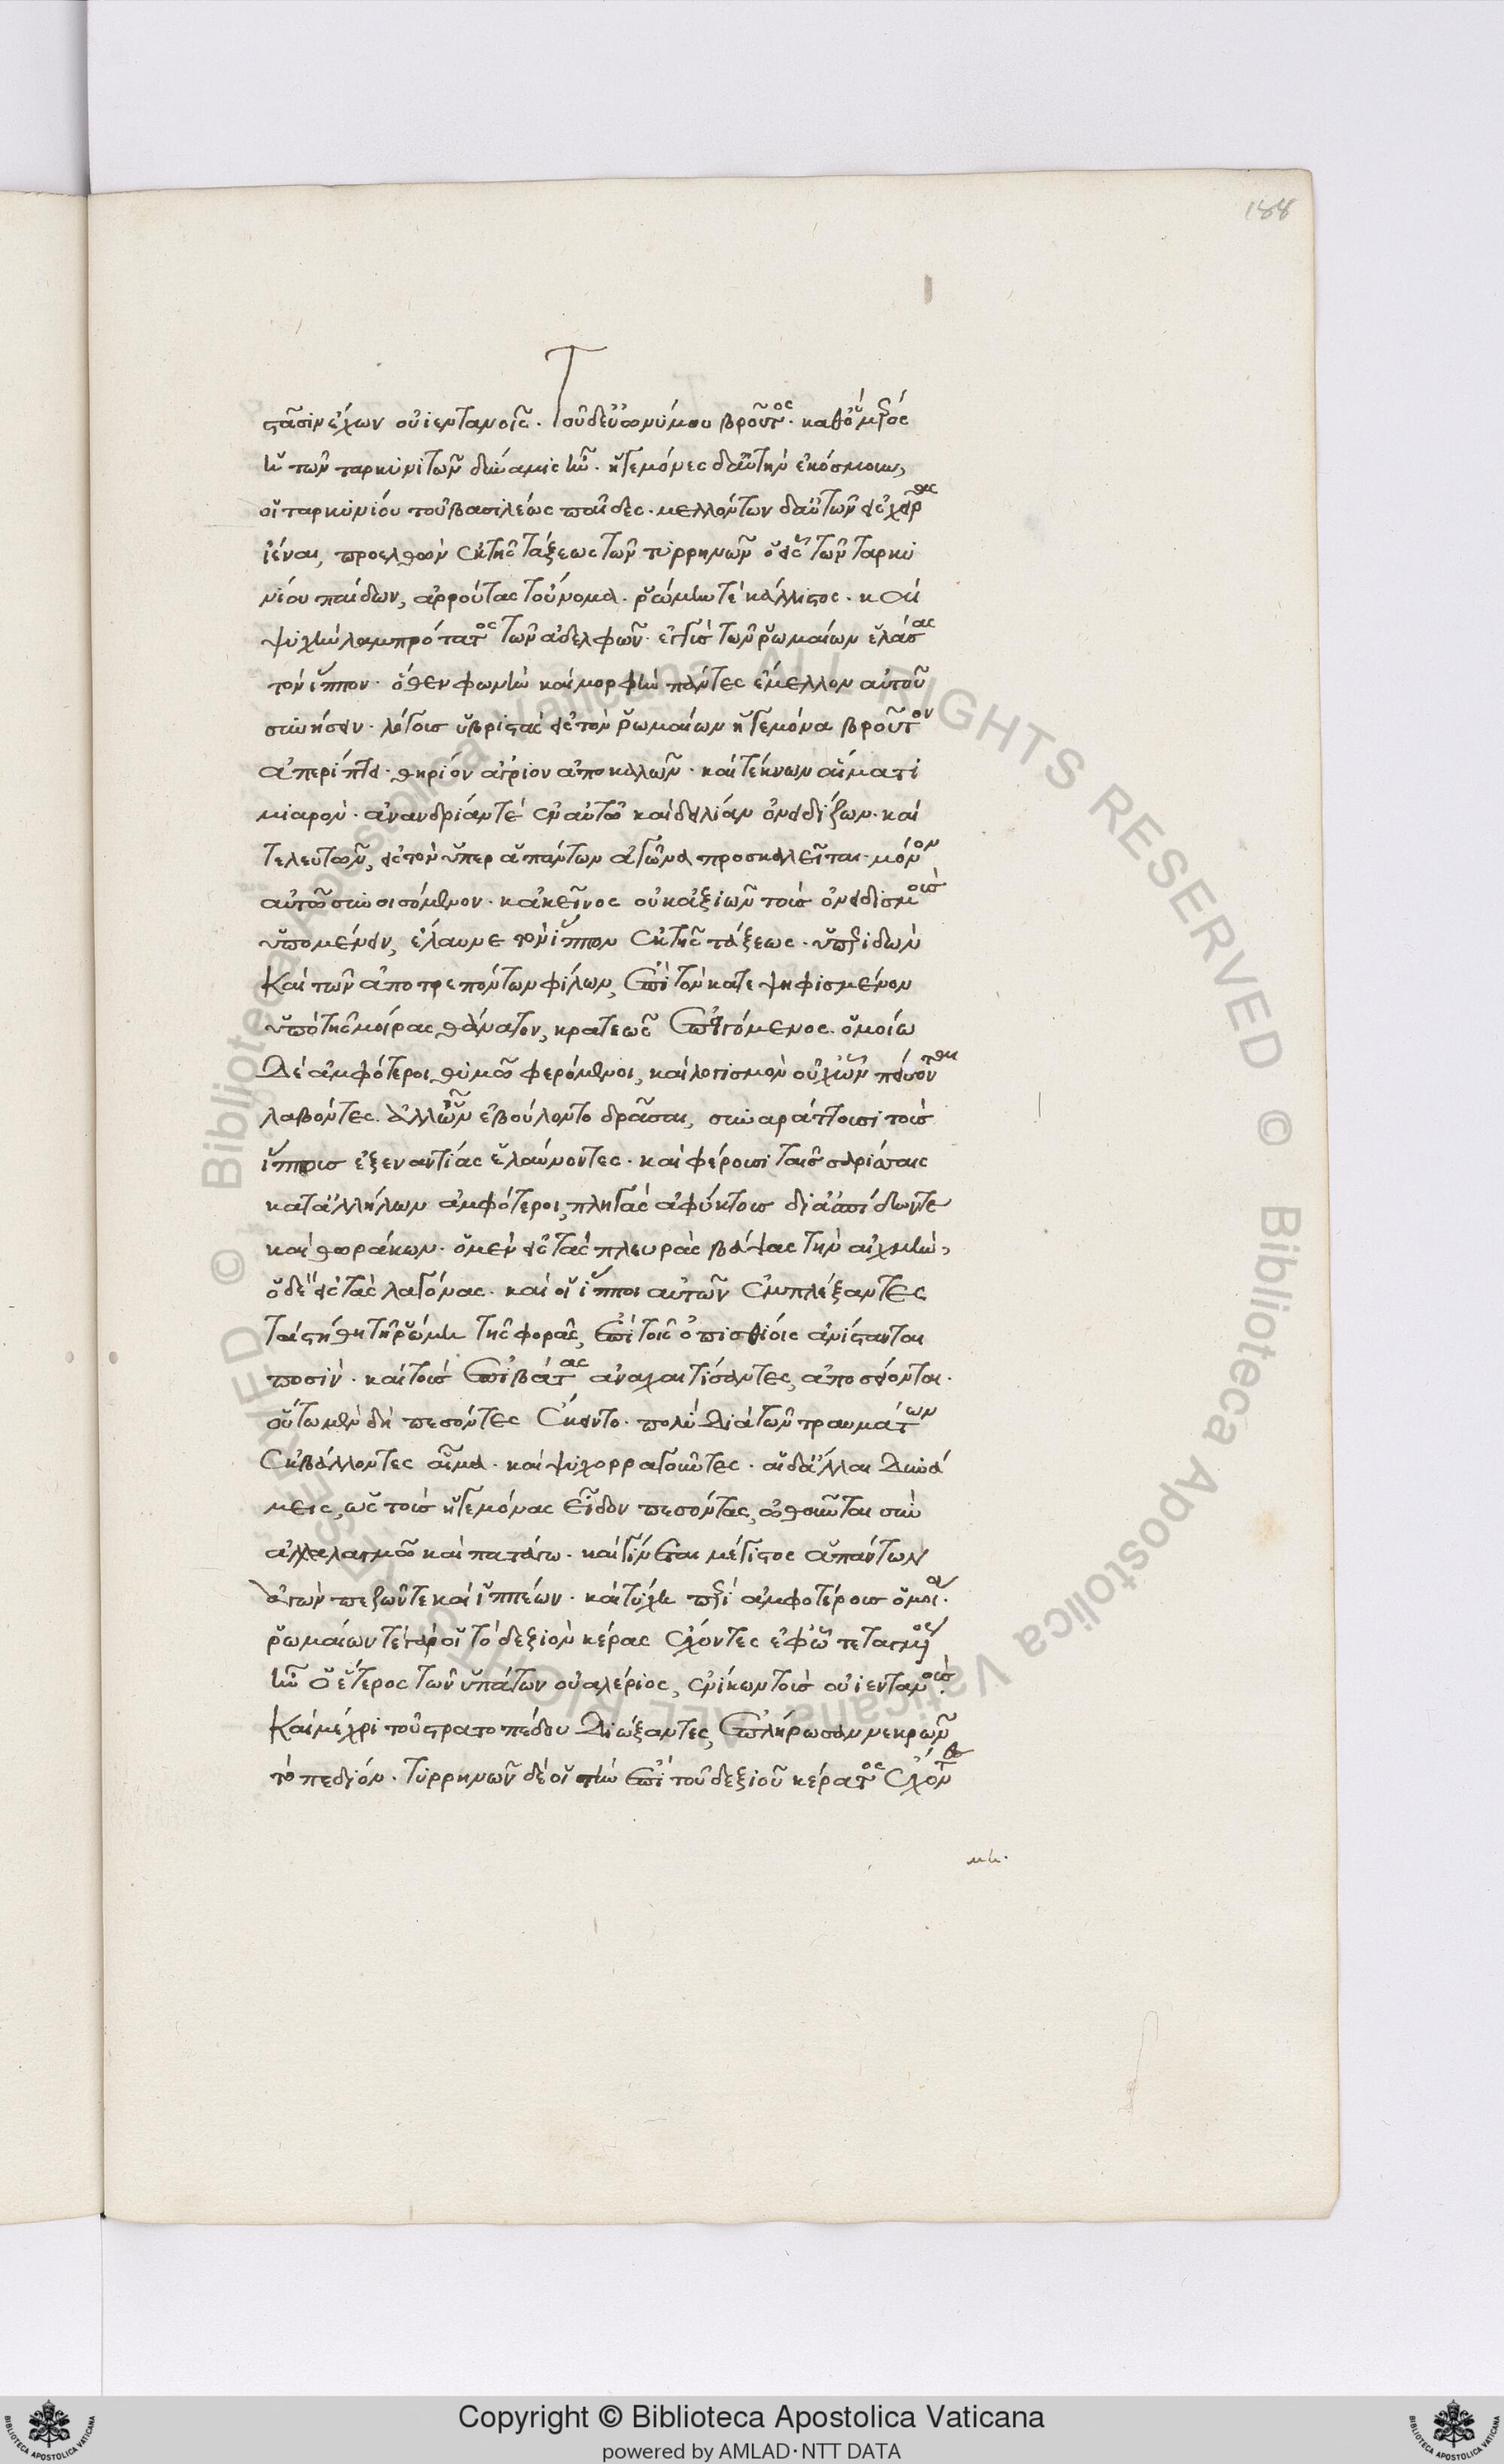 188
στᾶσιν ἔχων οὐιεντανοῖς. Τοῦ δ' εὐωνύμου βροῦτος. καθ' ὃ μέρος
ἡ τῶν ταρκυνιτῶν δύναμις ἦν. ἡγεμόνες δ' αὐτὴν ἐκόσμουν,
οἱ ταρκυνίου τοῦ βασιλέως παῖδες. μελλόντων δ' αὐτῶν εἰς χεῖρας
ἰέναι, προελθὼν ἐκ τῆς τάξεως τῶν τυρρηνῶν ὁ εἷς τῶν ταρκυ
νίου παίδων, ἀρροῦτας τοὔνομα. ῥώμην τὲ κάλλιστος. καὶ
ψυχὴν λαμπρότατος τῶν ἀδελφῶν. ἐγγὺς τῶν ῥωμαίων ἐλάσας
τὸν ἵππον. ὅθεν φωνὴν καὶ μορφὴν πάντες ἔμελλον αὐτοῦ
συνήσειν. λόγους ὑβριστὰς εἰς τὸν ῥωμαίων ἡγεμόνα βροῦτον
ἀπερίπτει. θηρίον ἄγριον ἀποκαλῶν. καὶ τέκνων αἵματι
μιαρὸν. ἀνανδρίαν τὲ ἐν αὐτῶ καὶ δειλίαν ὀνειδίζων. καὶ
τελευτῶν, εἰς τὸν ὑπὲρ ἁπάντων ἀγῶνα προσκαλεῖται. μόνον
αὐτῶ συνοισόμενον. κἀκεῖνος οὐκ ἀξιῶν τοὺς ὀνειδισμοὺς
ὑπομένειν, ἤλαυνε τὸν ἵππον ἐκ τῆς τάξεως. ὑπεριδὼν
καὶ τῶν ἀποτρεπόντων φίλων, ἐπὶ τὸν κατεψηφισμένον
ὑπὸ τῆς μοίρας θάνατον, κρατεῶς ἐπειγόμενος. ὁμοίω
δὲ ἀμφότεροι θυμῶ φερόμενοι, καὶ λογισμὸν οὐχ ὧν πείσονται
λαβόντες. ἀλλ' ὧν ἐβούλοντο δρᾶσαι, συναράττουσι τοὺς
ἵππους ἐξεναντίας ἐλαύνοντες. καὶ φέρουσι ταῖς σαρίσαις
κατ' ἀλλήλων ἀμφότεροι, πληγὰς ἀφύκτους δι' ἀσπίδων τε
καὶ θωράκων. ὁ μὲν εἰς τὰς πλευρὰς βάψας τὴν αἰχμὴν,
ὁ δὲ εἰς τὰς λαγόνας. καὶ οἱ ἵπποι αὐτῶν ἐμπλέξαντες
τὰ στήθη τῆ ῥώμη τῆς φορᾶς, ἐπὶ τοῖς ὀπισθίοις ἀνίστανται
ποσὶν. καὶ τοὺς ἐπιβάτας ἀναχαιτίσαντες, ἀποσείονται.
οὗτοι μὲν δὴ πεσόντες ἔκειντο. πολὺ διὰ τῶν τραυμάτων
ἐκβάλλοντες αἷμα. καὶ ψυχορραγοῦντες. αἱ δ' ἄλλαι δυνά
μεις, ὡς τοὺς ἡγεμόνας εἶδον πεσόντας, ὠθοῦνται σὺν
ἀλαλαγμῶ καὶ πατάγω. καὶ γίνεται μέγιστος ἁπάντων
ἀγὼν πεζῶν τε καὶ ἱππέων. καὶ τύχη περὶ ἀμφοτέρους ὁμοία.
ῥωμαίων τὲ γὰρ οἱ τὸ δεξιὸν κέρας ἔχοντες ἐφ' ὧ τεταγμένος
ἦν ὁ ἕτερος τῶν ὑπάτων οὐαλέριος, ἐνίκων τοὺς οὐιεντανοὺς.
καὶ μέχρι τοῦ στρατοπέδου διώξαντες, ἐπλήρωσαν νεκρῶν
τὸ πεδίον. τυρρηνῶν δὲ οἱ τὴν ἐπὶ τοῦ δεξιοῦ κέρατος ἔχοντες
Copyright © Biblioteca Apostolica Vaticana
powered by AMLAD·NTT DATA